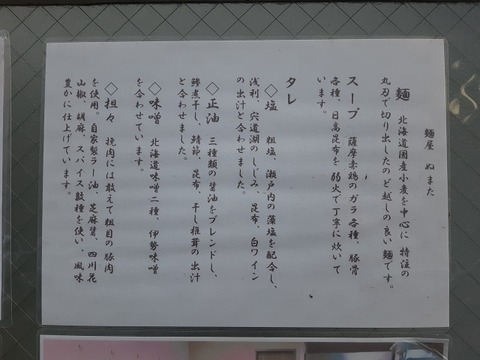 麺屋 ぬまた
麺 北海道国産小麦を中心に 特注の
丸刃で切り出したのど越しの良い麺です。
スープ 薩摩赤鶏のガラ各種、豚骨
各種、日高昆布を弱火で丁寧に炊いて
います。
タレ
◇塩 粗塩、瀬戸内の藻塩を配合し、
浅利、宍道湖のしじみ、昆布、白ワイン
の出汁と合わせました。
◇正油 三種類の醤油をブレンドし、
鯵煮干し、鯖節、昆布、干し椎茸の出汁
と合わせました。
◇味噌 北海道味噌二種、伊勢味噌
を合わせています。
◇担々 挽肉には敢えて粗目の豚肉
を使用、自家製ラー油、芝麻醤、四川花
山椒、胡麻、スパイス数種を使い、風味
豊かに仕上げています。